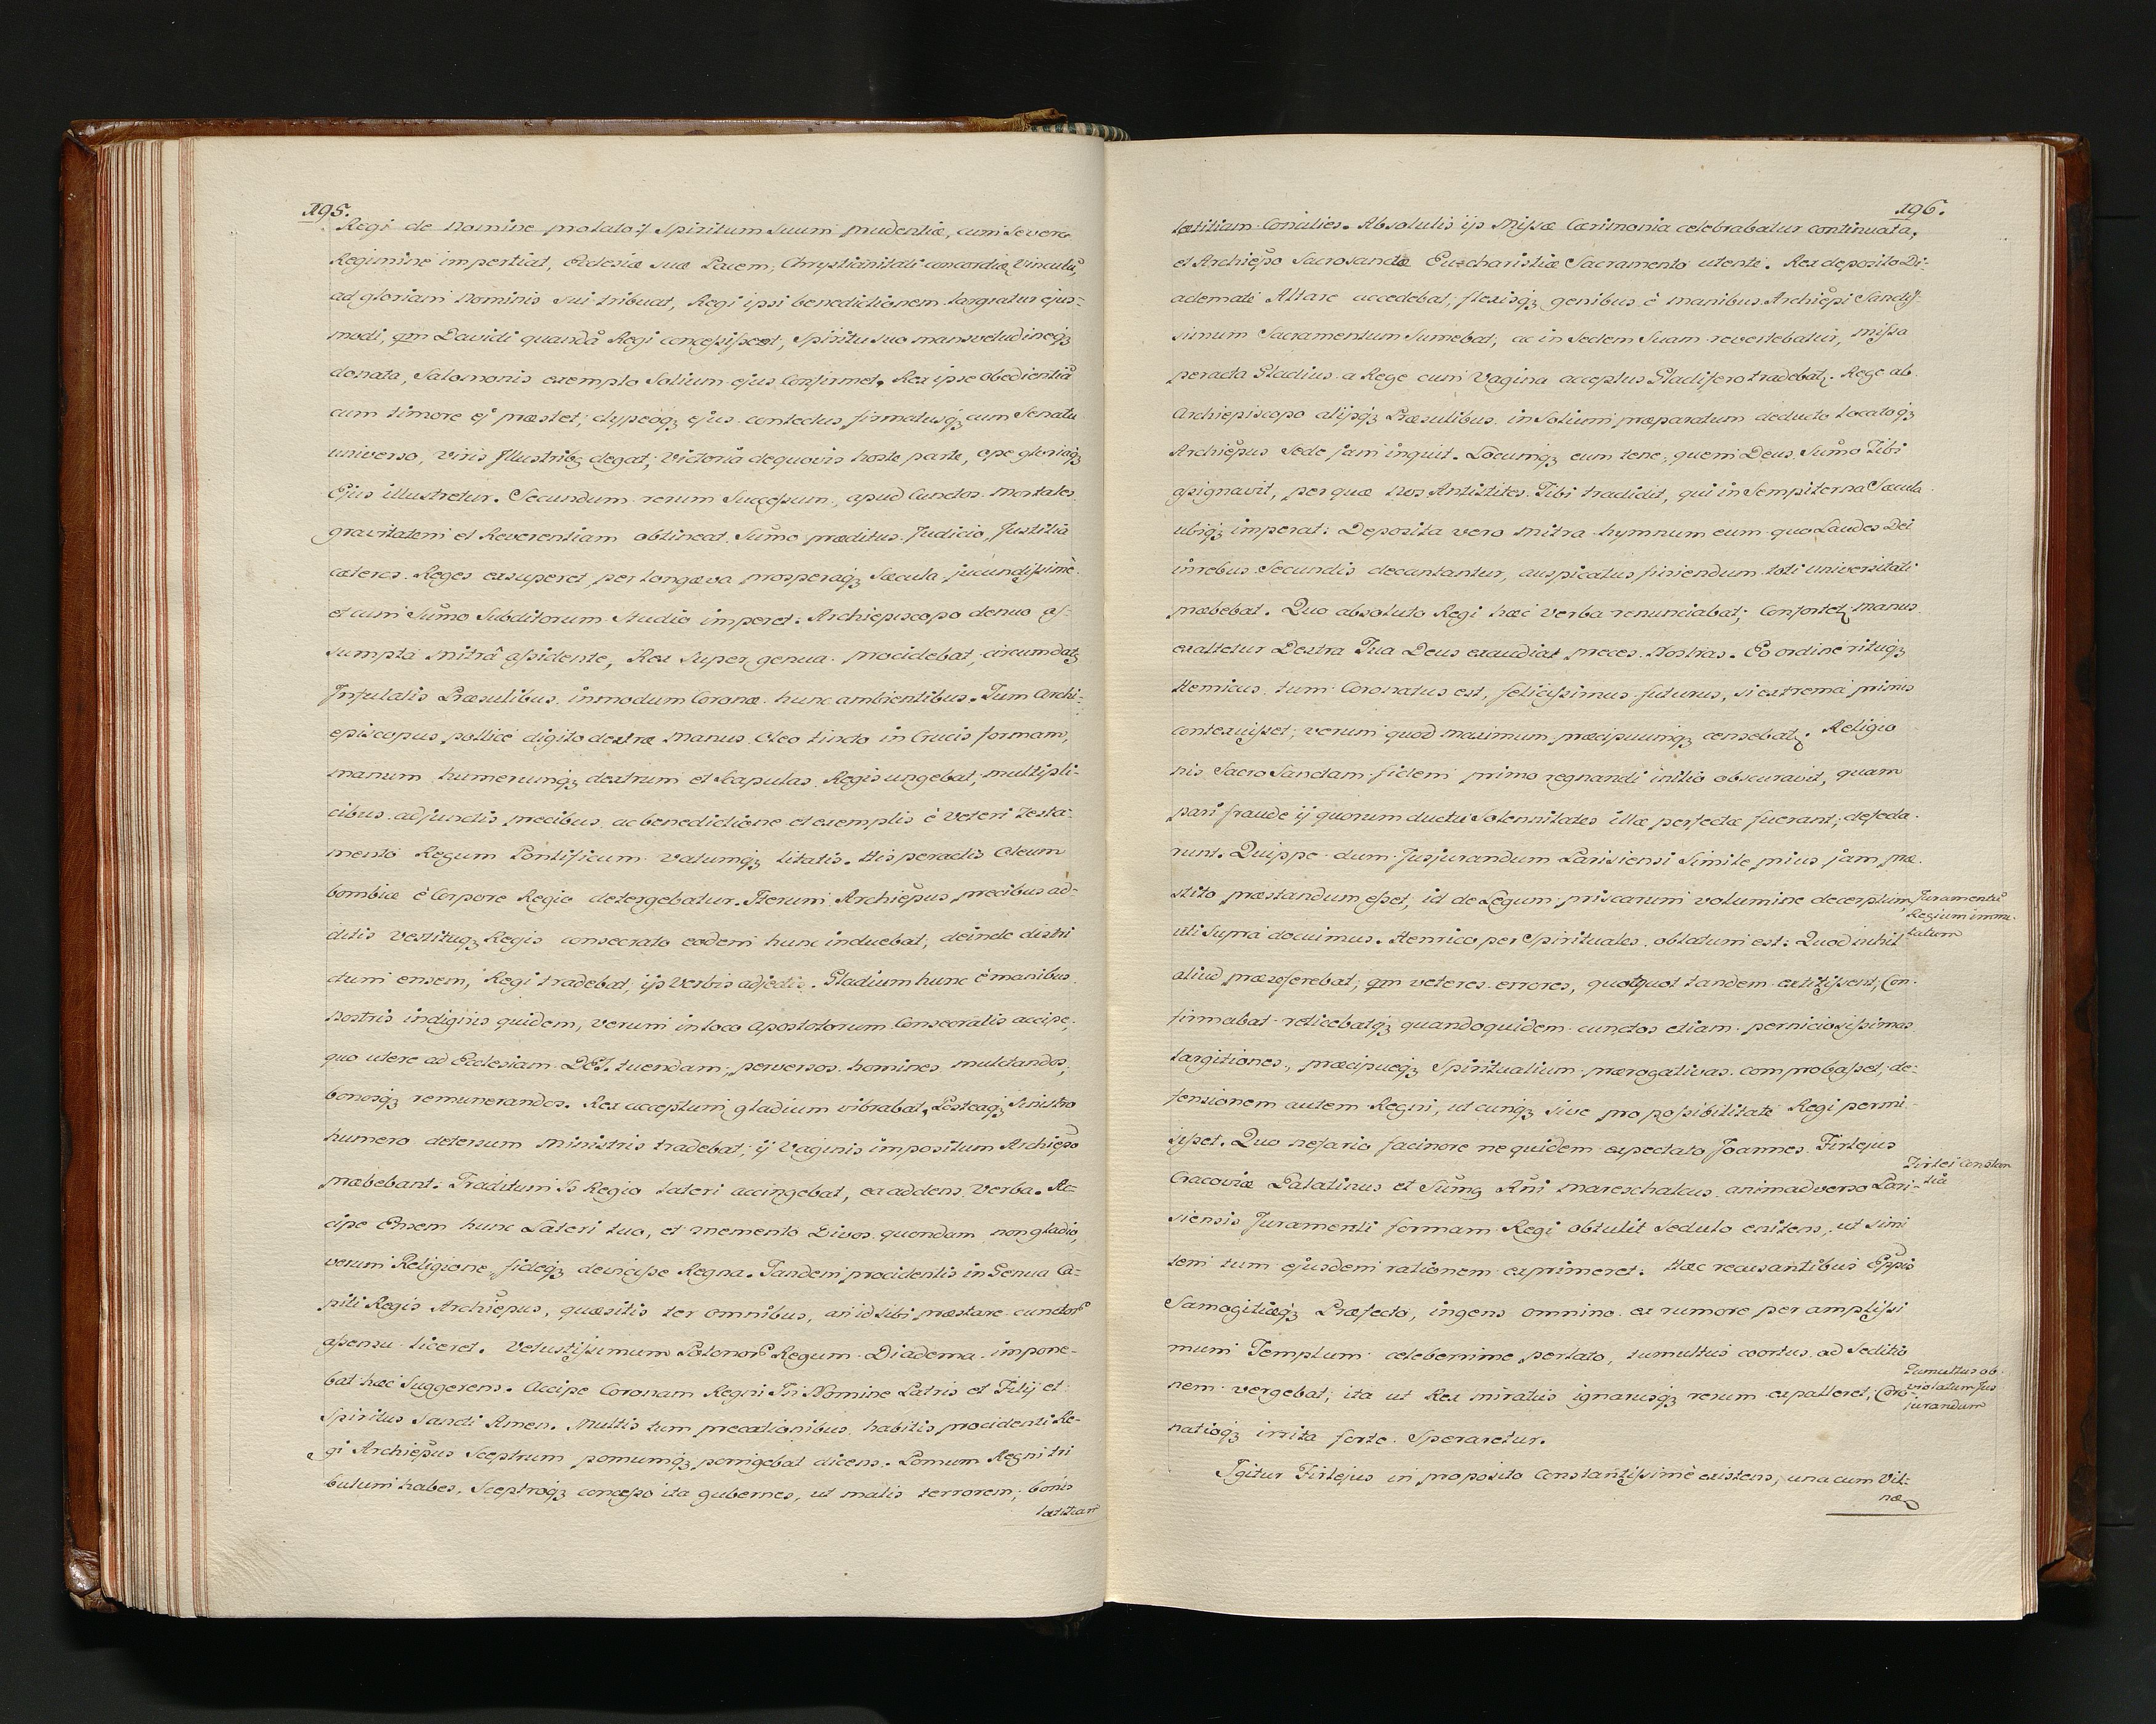 195.
Regi de Nomine prolato :/ Spiritum Suum prudentiæ, cum Severo
Regimine impertiat, Ecclesiæ suæ Pacem, Chrystianitati concordiæ Vinculũ,
ad gloriam Nominis sui tribuat, Regi ipsi benedictionem largiatur ejus-
modi, qm Davidi quandã Regi concessisset, Spiritu suo mansvetudineq
donata, Salomonis exemplo Solium ejus Confirmet. Rex ipse obedientiã
cum timore ej præstet; clypeoq ejus contectus firmatusq cum Senatu
universo, viris Illustrib degat; Victoriâ de quovis hoste parte, ope gloriaq
Ejus illustretur. Secundum rerum Successum, apud Cunctos Mortales
gravitatem et Reverentiam obtineat. Sumo præditus Judicio, Justitia
cæteros Reges exsuperet, per longæva prosperaq Sæcula jucundissimè
et cum Sumo Subditorum Studio imperet. Archiepiscopo denuo as-
sumptâ Mitrâ assidente, Rex Super genua procidebat, circumdatq
Infulatis Præsulibus in modum Coronæ hunc ambientibus. Tum Archi-
episcopus pollice digito dextræ manus Oleo tincto in Crucis formam,
manum humerumq dextrum et Scapulas Regis ungebat, multipli-
cibus adjunctis precibus ac benedictione et exemplis è Veteri Testa-
mento Regum Pontificum Vatumq litatis. His peractis Oleum
bombice è Corpore Regio detergebatur. Iterum Archieṗus precibus ad-
ditis Vestituq Regis consecrato eodem hunc induebat, deinde distri
ctum ensem, Regi tradebat, ijs Verbis adjectis. Gladium hunc è manibus
Nostris indignis quidem, verum in loco Apostolorum Consecratis accipe,
quo utere ad Ecclesiam DEI. tuendam, perversos homines mulctandos,
bonosq remunerandos. Rex acceptum gladium vibrabat, Posteaq Sinistro
humero detersum Ministris tradebat; ij Vaginis impositum Archiepo
præbebant. Traditum Is Regio lateri accingebat, ea addens Verba. Ac-
cipe Ensem hunc Lateri tuo, et memento Divos quondam non gladio,
verum Religione, fideq devicisse Regna. Tandem procidentis in Genua Ca-
piti Regis Archiepus, quæsitis ter omnibus, an id sibi præstare cunctor
assensu liceret. Vetustissimum Polonor Regum Diadema impone-
bat hæc Suggerens. Accipe Coronam Regni In Nomine Patris et Filij et
Spiritus Sancti Amen. Multis tum precationibus habitis procidenti Re-
gi Archiepus Sceptrum pomumq porrigebat dicens. Pomum Regni tri
butum habes, Sceptroq concesso ita gubernes, ut malis terrorem, bonis
lætitiam
196.
lætitiam Concilies. Absolutis ijs Missæ Cærimonia celebrabatur continuata,
et Archiepo Sacrosanctæ Eucharistiæ Sacramento utente. Rex deposito Di-
ademate Altare accedebat, flexisq genibus è manibus Archiepi Sanctis-
simum Sacramentum Sumebat, ac in Sedem Suam revertebatur, Missa
peracta Gladius a Rege cum Vagina acceptus Gladifero tradebat. Rege ab
Archiepiscopo alijsq Præsulibus in Solium præparatum deducto locatoq
Archiepus Sede jam inquit. Locumq eum tene, quem Deus Sumo Tibi
assignavit, per quæ Nos Antistites Tibi tradidit, qui in Sempiterna Sæcula
ubiq imperat. Deposita vero Mitra hymnum eum quo Laudes Dei
in rebus Secundis decantantur, auspicatus finiendum toti universitati
præbebat. Quo absoluto Regi hæc Verba renunciabat; Confortet manus
exaltetur Dextra Tua Deus exaudiat preces Nostras. Eo ordine rituq
Henricus tum Coronatus est, felicissimus futurus, si extrema primis
contexuisset, verum quod maximum præcipuumq censebat. Religio
nis Sacro Sanctam fidem primo regnandi initio obscuravit, quam
pari fraude ij quorum ductu Solennitates illæ perfectæ fuerant, defeda
runt. Quippe dum Jusjurandum Parisiensi Simile prius jam præ
stito præstandum esset, id de Legum priscarum volumine decerptum
uti Supra docuimus. Henrico per Spirituales oblatum est: Quod nihil
aliud præseferebat, qm veteres errores, quotquot tandem extitissent, Con-
firmabat reticebatq quandoquidem cunctos etiam perniciosissimas
largitiones, præcipueq Spiritualium prærogativas comprobasset, de-
fensionem autem Regni, utcunq sive pro possibilitate Regi permi-
sisset. Quo nefario facinore ne quidem expectato Joannes Firlejus
Cracoviæ Palatinus et Sumg Rñi Mareschalcus animadverso Pari-
siensis Juramenti formam Regi obtulit Sedulo enitens, ut Simi
lem tum ejusdem rationem exprimeret. Hæc recusantibus Eppis
Samogitiæq Præfecto, ingens omnino ex rumore per amplissi
mum Templum celeberrime perlato, tumultus coortus ad Seditio
nem vergebat; ita ut Rex miratus ignarusq rerum expalleret, Coro-
natioq irrita forte Speraretur.
Igitur Firlejus in proposito Constantissimè existens, una cum Vil-
næ
Juramentũ
Regium immu-
tatum
Firlei Constan
tia
Tumultus ob
violatum Jus
jurandum